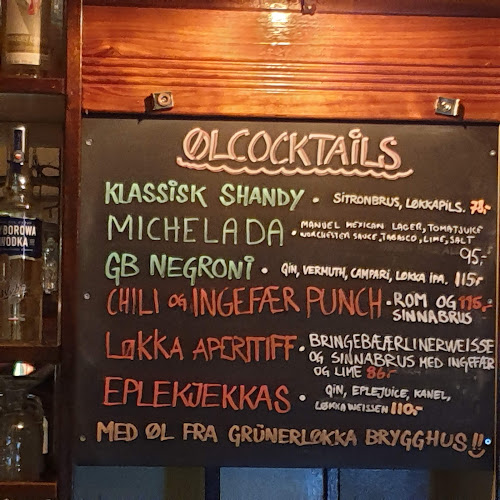 ØLCOCKTAILS
KLASSISK SHANDY • SITRONBRUS, LØKKAPILS. 78,-
MICHELADA • MANUEL MEXICAN LAGER, TOMATJUICE
WORCHESTER SAUCE, TABASCO, LIME, SALT
95,-
GB NEGRONI • GIN, VERMUTH, CAMPARI, LØKKA IPA. 115,-
CHILI OG INGEFÆR PUNCH • ROM OG 115,-
SINNABRUS
LØKKA APERITIFF • BRINGEBÆÆRLINERWEISSE
OG SINNABRUS MED INGEFÆR
OG LIME 86,-
EPLEKJEKKAS • GIN, EPLEJUICE, KANEL,
LØKKA WEISSEN 110,-
MED ØL FRA GRÜNERLØKKA BRYGGHUS!!
WYBOROWA
WODKA